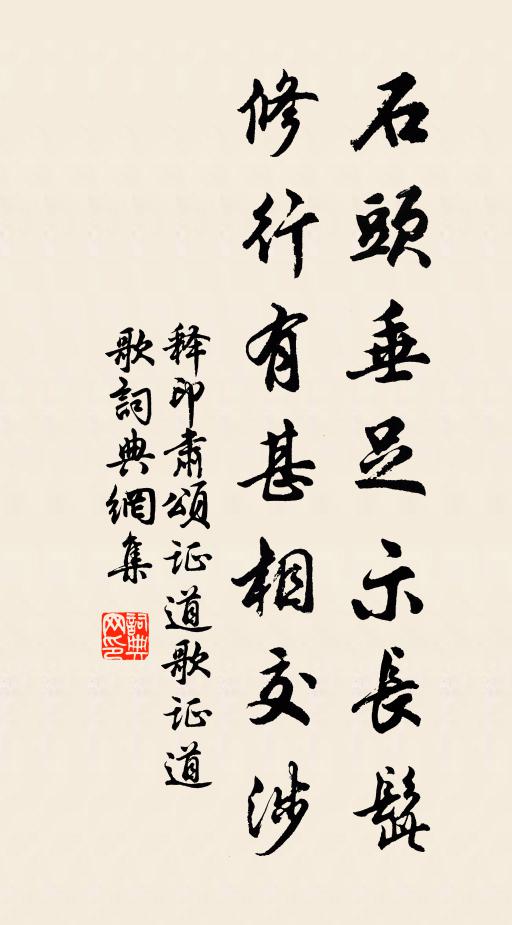 石頭垂足示長髭
修行有甚相交涉
释印肅頌证道歌证道
歌詞典網集
詞典网印